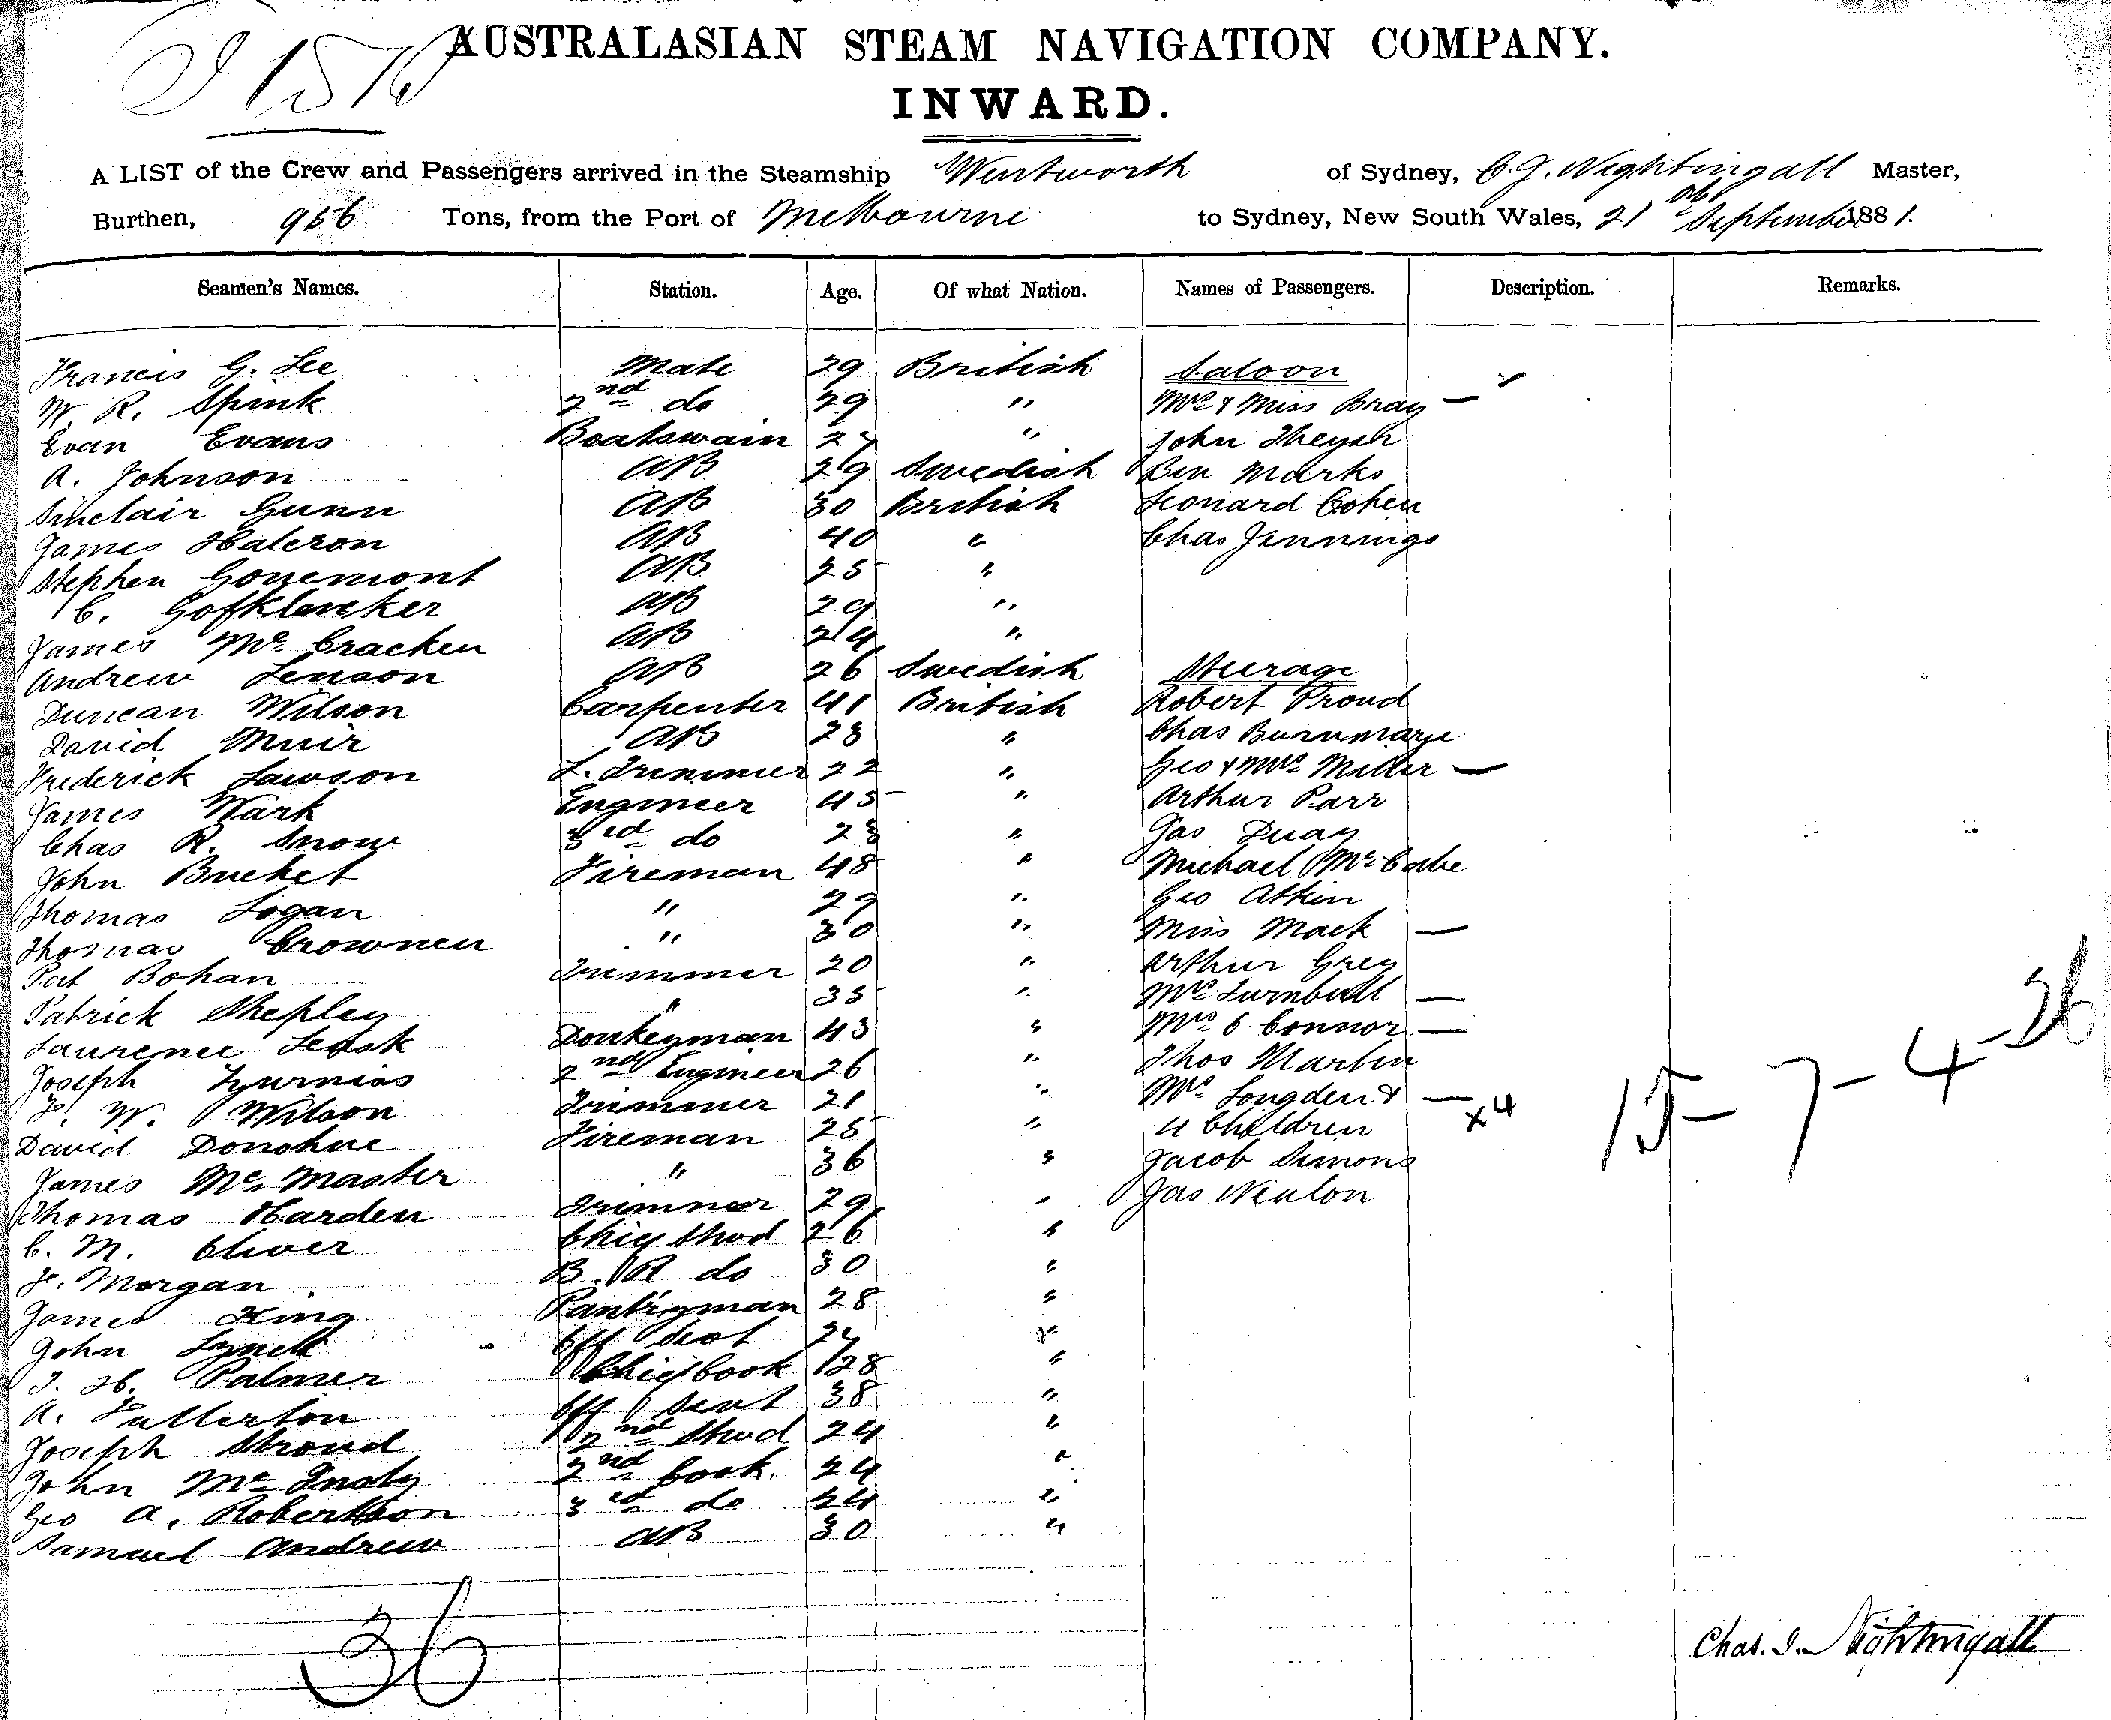 AUSTRALASIAN STEAM NAVIGATION COMPANY.
INWARD.
A LIST of the Crew and Passengers arrived in the Steamship Wentworth of Sydney, C. J. Nightingall Master,
Burthen, 956 Tons, from the Port of Melbourne to Sydney, New South Wales, 21 September 1881.
Seamen's Names. Station. Age. Of what Nation. Names of Passengers. Description. Remarks.
Francis G. Lee Mate 29 British Saloon
W. R. Spink 2nd do 29 " Mrs & Miss Bray —
Evan Evans Boatswain 27 " John
A. Johnson AB 29 Swedish Ben Marks
Sinclair Gunn AB 30 British Leonard Cohen
James Halcron AB 40 " Chas Jennings
Stephen AB 25 "
C. AB 29 "
James McCracken AB 24 "
Andrew Lenson AB 26 Swedish Steerage
Duncan Wilson Carpenter 41 British Robert Proud
David Muir AB 23 " Chas
Frederick Lawson L. Trimmer 22 " Geo & Mrs Miller —
James Wark Engineer 45 " Arthur Parr
Chas R. Snow 3rd do 23 " Jas Duay
John Bucket Fireman 48 " Michael McCabe
Thomas Logan " 29 " Geo Atkin
Thomas Crownen " 30 " Miss Mack —
Pat Bohan Trimmer 20 " Arthur Grey
Patrick Shepley " 35 " Mrs Turnbull —
Laurence Leask Donkeyman 43 " Mrs O Connor —
Joseph 2nd Engineer 26 " Thos Martin
W. Wilson Trimmer 21 " Mrs Longden & —
David Donohue Fireman 25 " 4 Children x4
James McMaster " 36 " Jacob Simons
Thomas Harden Trimmer 29 " Jas
C. M. Oliver Chief Stwd 26 "
Morgan B. R do 30 "
James King Pantryman 28 "
John Lynch 27 "
J. H. Palmer Chief Cook 28 "
A. Fullerton 38 "
Joseph Stroud 2nd Stwd 24 "
John Mc 2nd Cook 24 "
Geo A. Robertson 3rd do 24 "
Samuel Andrew AB 30 "
15 - 7 - 4 - 26
36
Chas. J. Nightingall